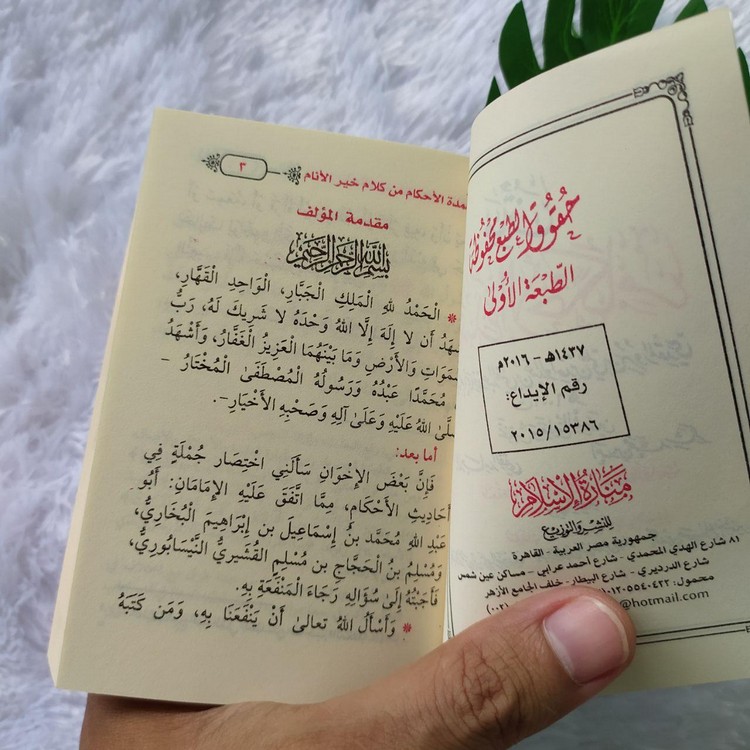 حُقُوقُ الطَّبْعِ مَحْفُوظَة
الطَّبْعَة الأُولَى
١٤٣٧هـ - ٢٠١٦م
رقم الإيداع:
٢٠١٥/١٥٣٨٦
مَنَارَةُ الإِسْلَام
للنشر والتوزيع
جمهورية مصر العربية - القاهرة
٨١ شارع الهدي المحمدي - شارع أحمد عرابي - مساكن عين شمس
شارع الدرديري - شارع البيطار - خلف الجامع الأزهر
محمول: ٠١٢٠٥٥٤٠٤٢٢ (٠٠٢)
@hotmail.com
عمدة الأحكام من كلام خير الأنام ٣
مقدمة المؤلف
بِسْمِ اللهِ الرَّحْمَنِ الرَّحِيمِ
* الْحَمْدُ للهِ الْمَلِكِ الْجَبَّارِ، الْوَاحِدِ الْقَهَّارِ،
أَشْهَدُ أَن لا إِلَهَ إِلَّا اللهُ وَحْدَهُ لا شَرِيكَ لَهُ، رَبُّ
السَّمَوَاتِ وَالأَرْضِ وَمَا بَيْنَهُمَا الْعَزِيزُ الْغَفَّارُ، وَأَشْهَدُ
مُحَمَّدًا عَبْدُهُ وَرَسُولُهُ الْمُصْطَفَى الْمُخْتَارُ -
صَلَّى اللهُ عَلَيْهِ وَعَلَى آلِهِ وَصَحْبِهِ الأَخْيَارِ-.
أما بعد:
فَإِنَّ بَعْضَ الإِخْوَانِ سَأَلَنِي اخْتِصَارَ جُمْلَةٍ فِي
أَحَادِيثِ الأَحْكَامِ، مِمَّا اتَّفَقَ عَلَيْهِ الإِمَامَانِ: أَبُو
عَبْدِ اللهِ مُحَمَّدُ بنُ إِسْمَاعِيلَ بن إِبْرَاهِيمَ الْبُخَارِيُّ،
وَمُسْلِمُ بنُ الْحَجَّاجِ بن مُسْلِمٍ الْقُشَيْرِيُّ النَّيْسَابُورِيُّ،
فَأَجَبْتُهُ إِلَى سُؤَالِهِ رَجَاءَ الْمَنْفَعَةِ بِهِ.
* وَأَسْأَلُ اللهَ تعالى أَنْ يَنْفَعَنَا بِهِ، وَمَن كَتَبَهُ